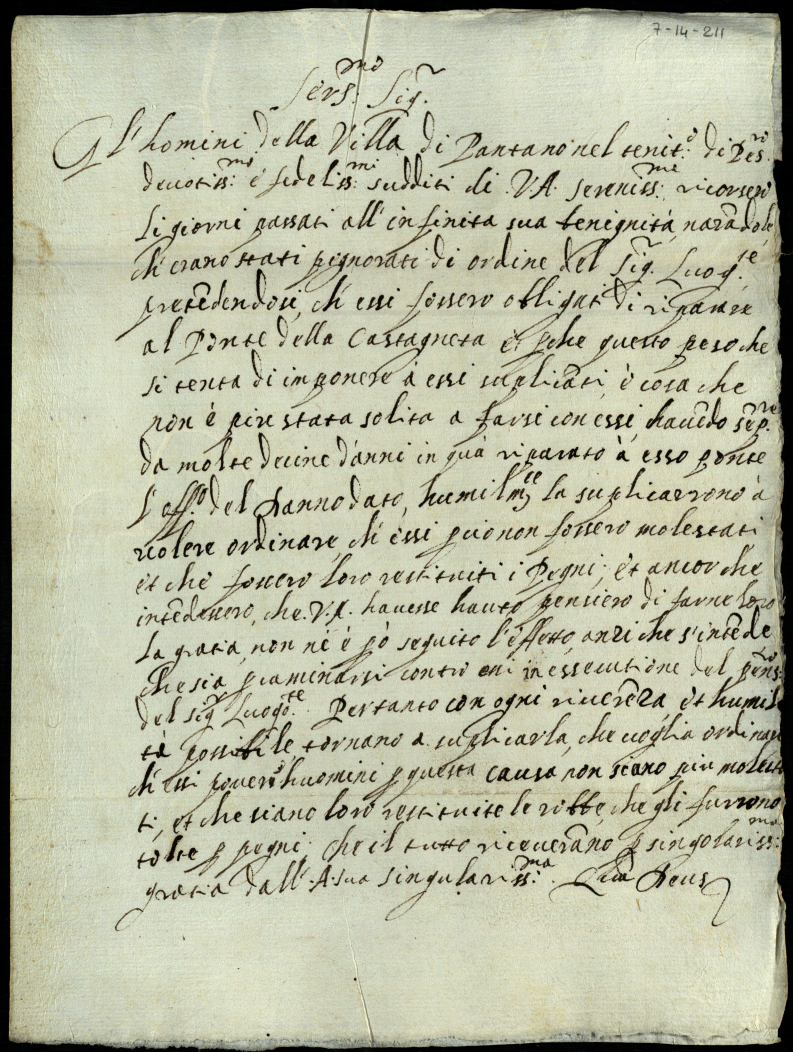 7-14-211
Ser.mo Sig.r
Gl'homini della Villa di Pantano nel territ.o di Pes.ro
devotiss.mi e fedeliss.mi sudditi di V.A. Sereniss.ma ricorsero
li giorni passati all'infinita sua benignità, narãdole,
ch'erano stati pignorati di ordine del Sig.r Luog.te
pretẽdendosi, ch'essi fossero obligati di riparare
al Ponte della Castagneta et pche questo peso che
si tenta di imponere à essi suplicãti, è cosa che
non è piu stata solita a farsi con essi, havẽdo sẽp.re
da molte decine d'anni in quà riparato à esso ponte
l'off.o del Danno dato, humilm.te la suplicarrono à
volere ordinare, ch'essi p ciò non fossero molestati
et che fossero loro restituiti i Pegni; et ancor che
intẽdessero, che V.A. havesse hauto pensiero di farne loro
la gratia, non nè è pò seguito l'effetto, anzi che s'intẽde
che sia p caminarsi contro essi in essecutione del
del sig.r Luogo.te Pertanto con ogni riverẽza, et humil
tà possibile tornano a suplicarla, che voglia ordinare
ch'essi poveri huomini p questa causa non siano piu molesta
ti, et che siano loro restituite le robbe, che gli furrono
tolte p pegni. che il tutto riceverãno p singolariss.ma
gratia dall'A. sua singulariss.ma Deus